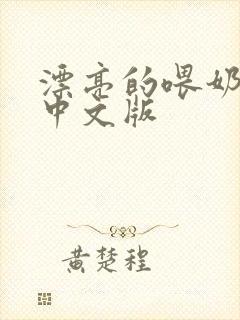 漂亮的喂奶
中文版
黄楚程